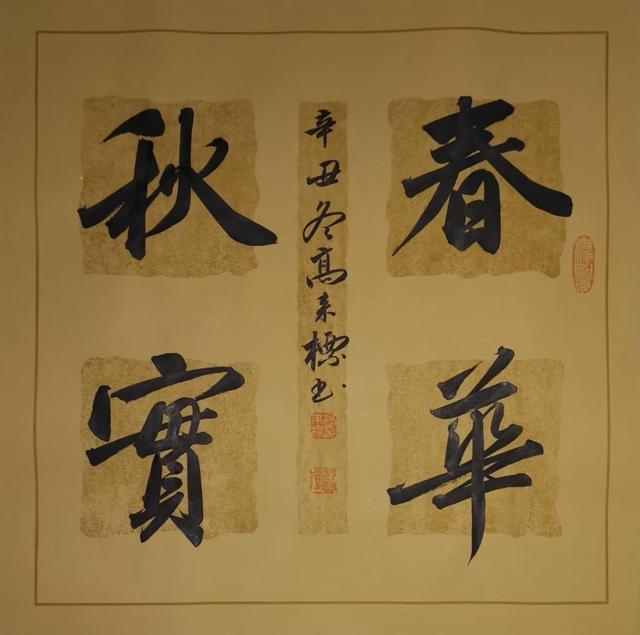 春華
秋實
辛丑冬高来標书